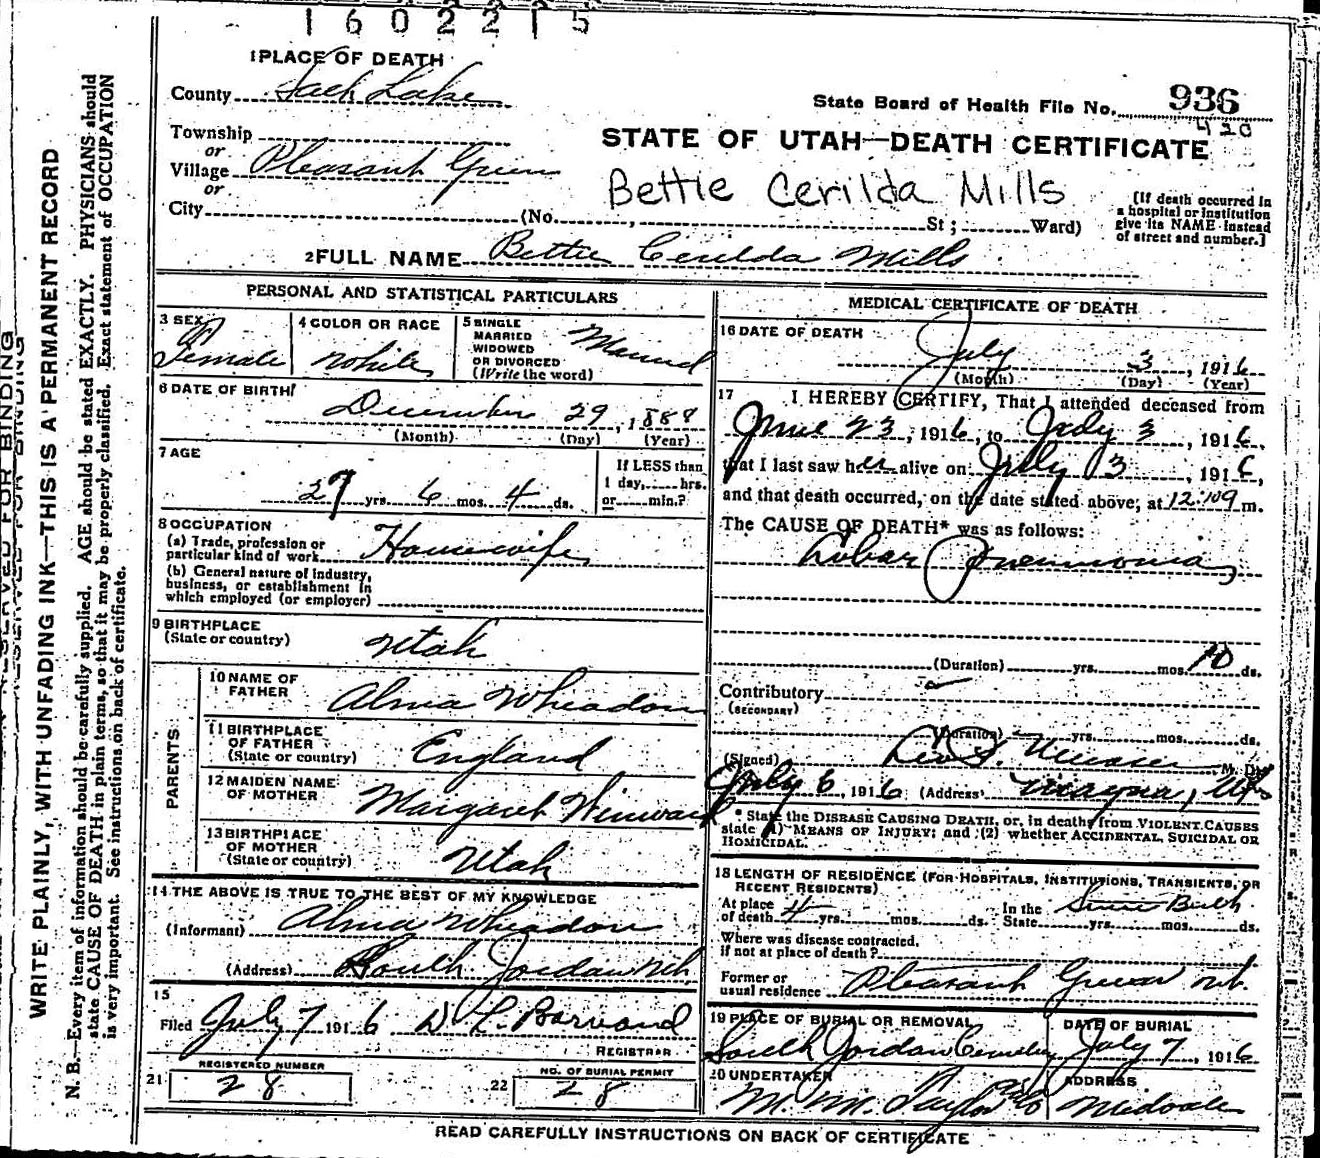 1602215
1 PLACE OF DEATH
County Salt Lake
State Board of Health File No. 936
420
Township
or
Village Pleasant Green
or
STATE OF UTAH—DEATH CERTIFICATE
Bettie Cerilda Mills
City (No. , St ; Ward)
[If death occurred in
a hospital or institution
give its NAME instead
of street and number.]
2 FULL NAME Bettie Cerilda Mills
PERSONAL AND STATISTICAL PARTICULARS
3 SEX Female
4 COLOR OR RACE White
5 SINGLE
MARRIED
WIDOWED
OR DIVORCED
(Write the word) Married
6 DATE OF BIRTH
December 29, 1888
(Month) (Day) (Year)
7 AGE
27 yrs. 6 mos. 4 ds.
If LESS than
1 day, hrs.
or min.?
8 OCCUPATION
(a) Trade, profession or
particular kind of work Housewife
(b) General nature of industry,
business, or establishment in
which employed (or employer)
9 BIRTHPLACE
(State or country) Utah
PARENTS
10 NAME OF
FATHER Alma Wheadon
11 BIRTHPLACE
OF FATHER
(State or country) England
12 MAIDEN NAME
OF MOTHER Margaret Winward
13 BIRTHPLACE
OF MOTHER
(State or country) Utah
14 THE ABOVE IS TRUE TO THE BEST OF MY KNOWLEDGE
(Informant) Alma Wheadon
(Address) South Jordan Uth
15
Filed July 7 1916 D. L. Barnard
REGISTRAR
21 REGISTERED NUMBER
28
22 NO. OF BURIAL PERMIT
28
MEDICAL CERTIFICATE OF DEATH
16 DATE OF DEATH
July 3, 1916
(Month) (Day) (Year)
17 I HEREBY CERTIFY, That I attended deceased from
June 23, 1916, to July 3, 1916,
that I last saw her alive on July 3, 1916,
and that death occurred, on the date stated above, at 12:09 m.
The CAUSE OF DEATH* was as follows:
Lobar Pneumonia
(Duration) yrs. mos. 10 ds.
Contributory
(SECONDARY)
(Duration) yrs. mos. ds.
(Signed) M. D.
July 6, 1916 (Address) Magna,
* State the DISEASE CAUSING DEATH, or, in deaths from VIOLENT CAUSES
state (1) MEANS OF INJURY; and (2) whether ACCIDENTAL, SUICIDAL OR
HOMICIDAL.
18 LENGTH OF RESIDENCE (FOR HOSPITALS, INSTITUTIONS, TRANSIENTS, OR
RECENT RESIDENTS)
At place
of death 4 yrs. mos. ds. In the
State Since Birth yrs. mos. ds.
Where was disease contracted,
if not at place of death?
Former or
usual residence Pleasant Green Ut.
19 PLACE OF BURIAL OR REMOVAL
South Jordan Cemetery
DATE OF BURIAL
July 7, 1916
20 UNDERTAKER
M. M. Taylor
ADDRESS
Midvale
READ CAREFULLY INSTRUCTIONS ON BACK OF CERTIFICATE
RESERVED FOR BINDING
WRITE PLAINLY, WITH UNFADING INK—THIS IS A PERMANENT RECORD
N. B.—Every item of information should be carefully supplied. AGE should be stated EXACTLY. PHYSICIANS should
state CAUSE OF DEATH in plain terms, so that it may be properly classified. Exact statement of OCCUPATION
is very important. See instructions on back of certificate.